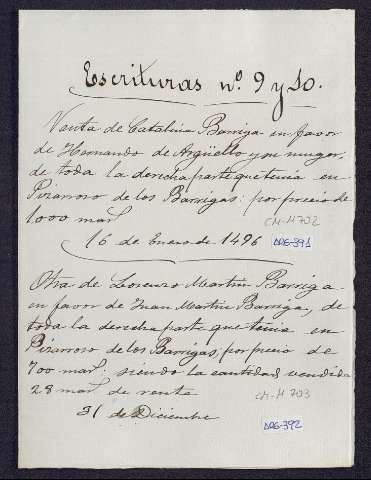 Escrituras nº 9 y 10.
Venta de Catalina Barriga en favor
de Hernando de Argüello y su muger,
de toda la derecha parte que tenia en
Pizarroso de los Barrigas: por precio de
1000 mars
CM-M702
16 de Enero de 1496
DRG-391
Otra de Lorenzo Martin Barriga
en favor de Juan Martin Barriga, de
toda la derecha parte que tenia en
Pizarroso de los Barrigas, por precio de
700 mars: siendo la cantidad vendida
28 mars de renta
CM-M 703
31 de Diciembre
DRG-392